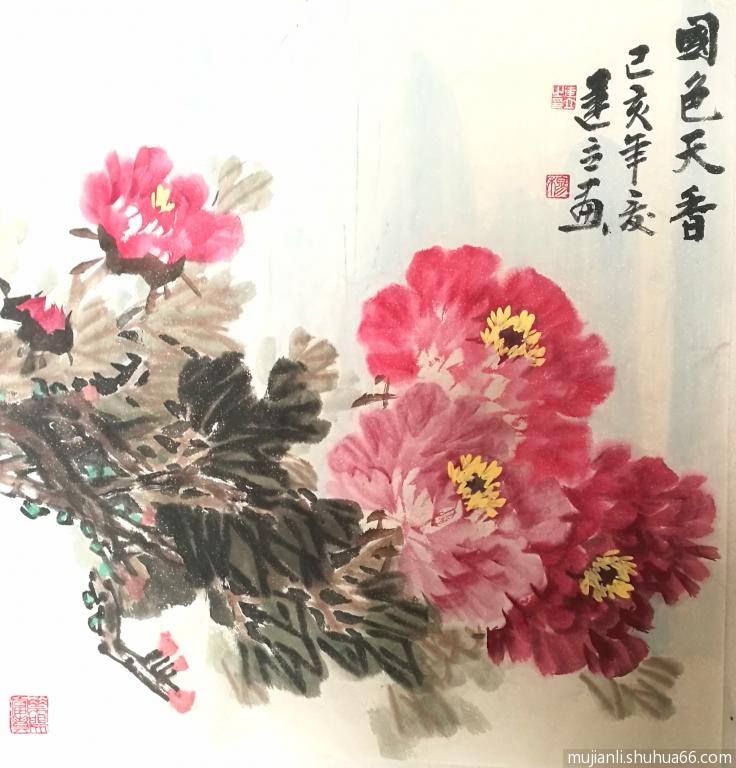 國色天香
己亥年夏
建立画
mujianli.shuhua66.com